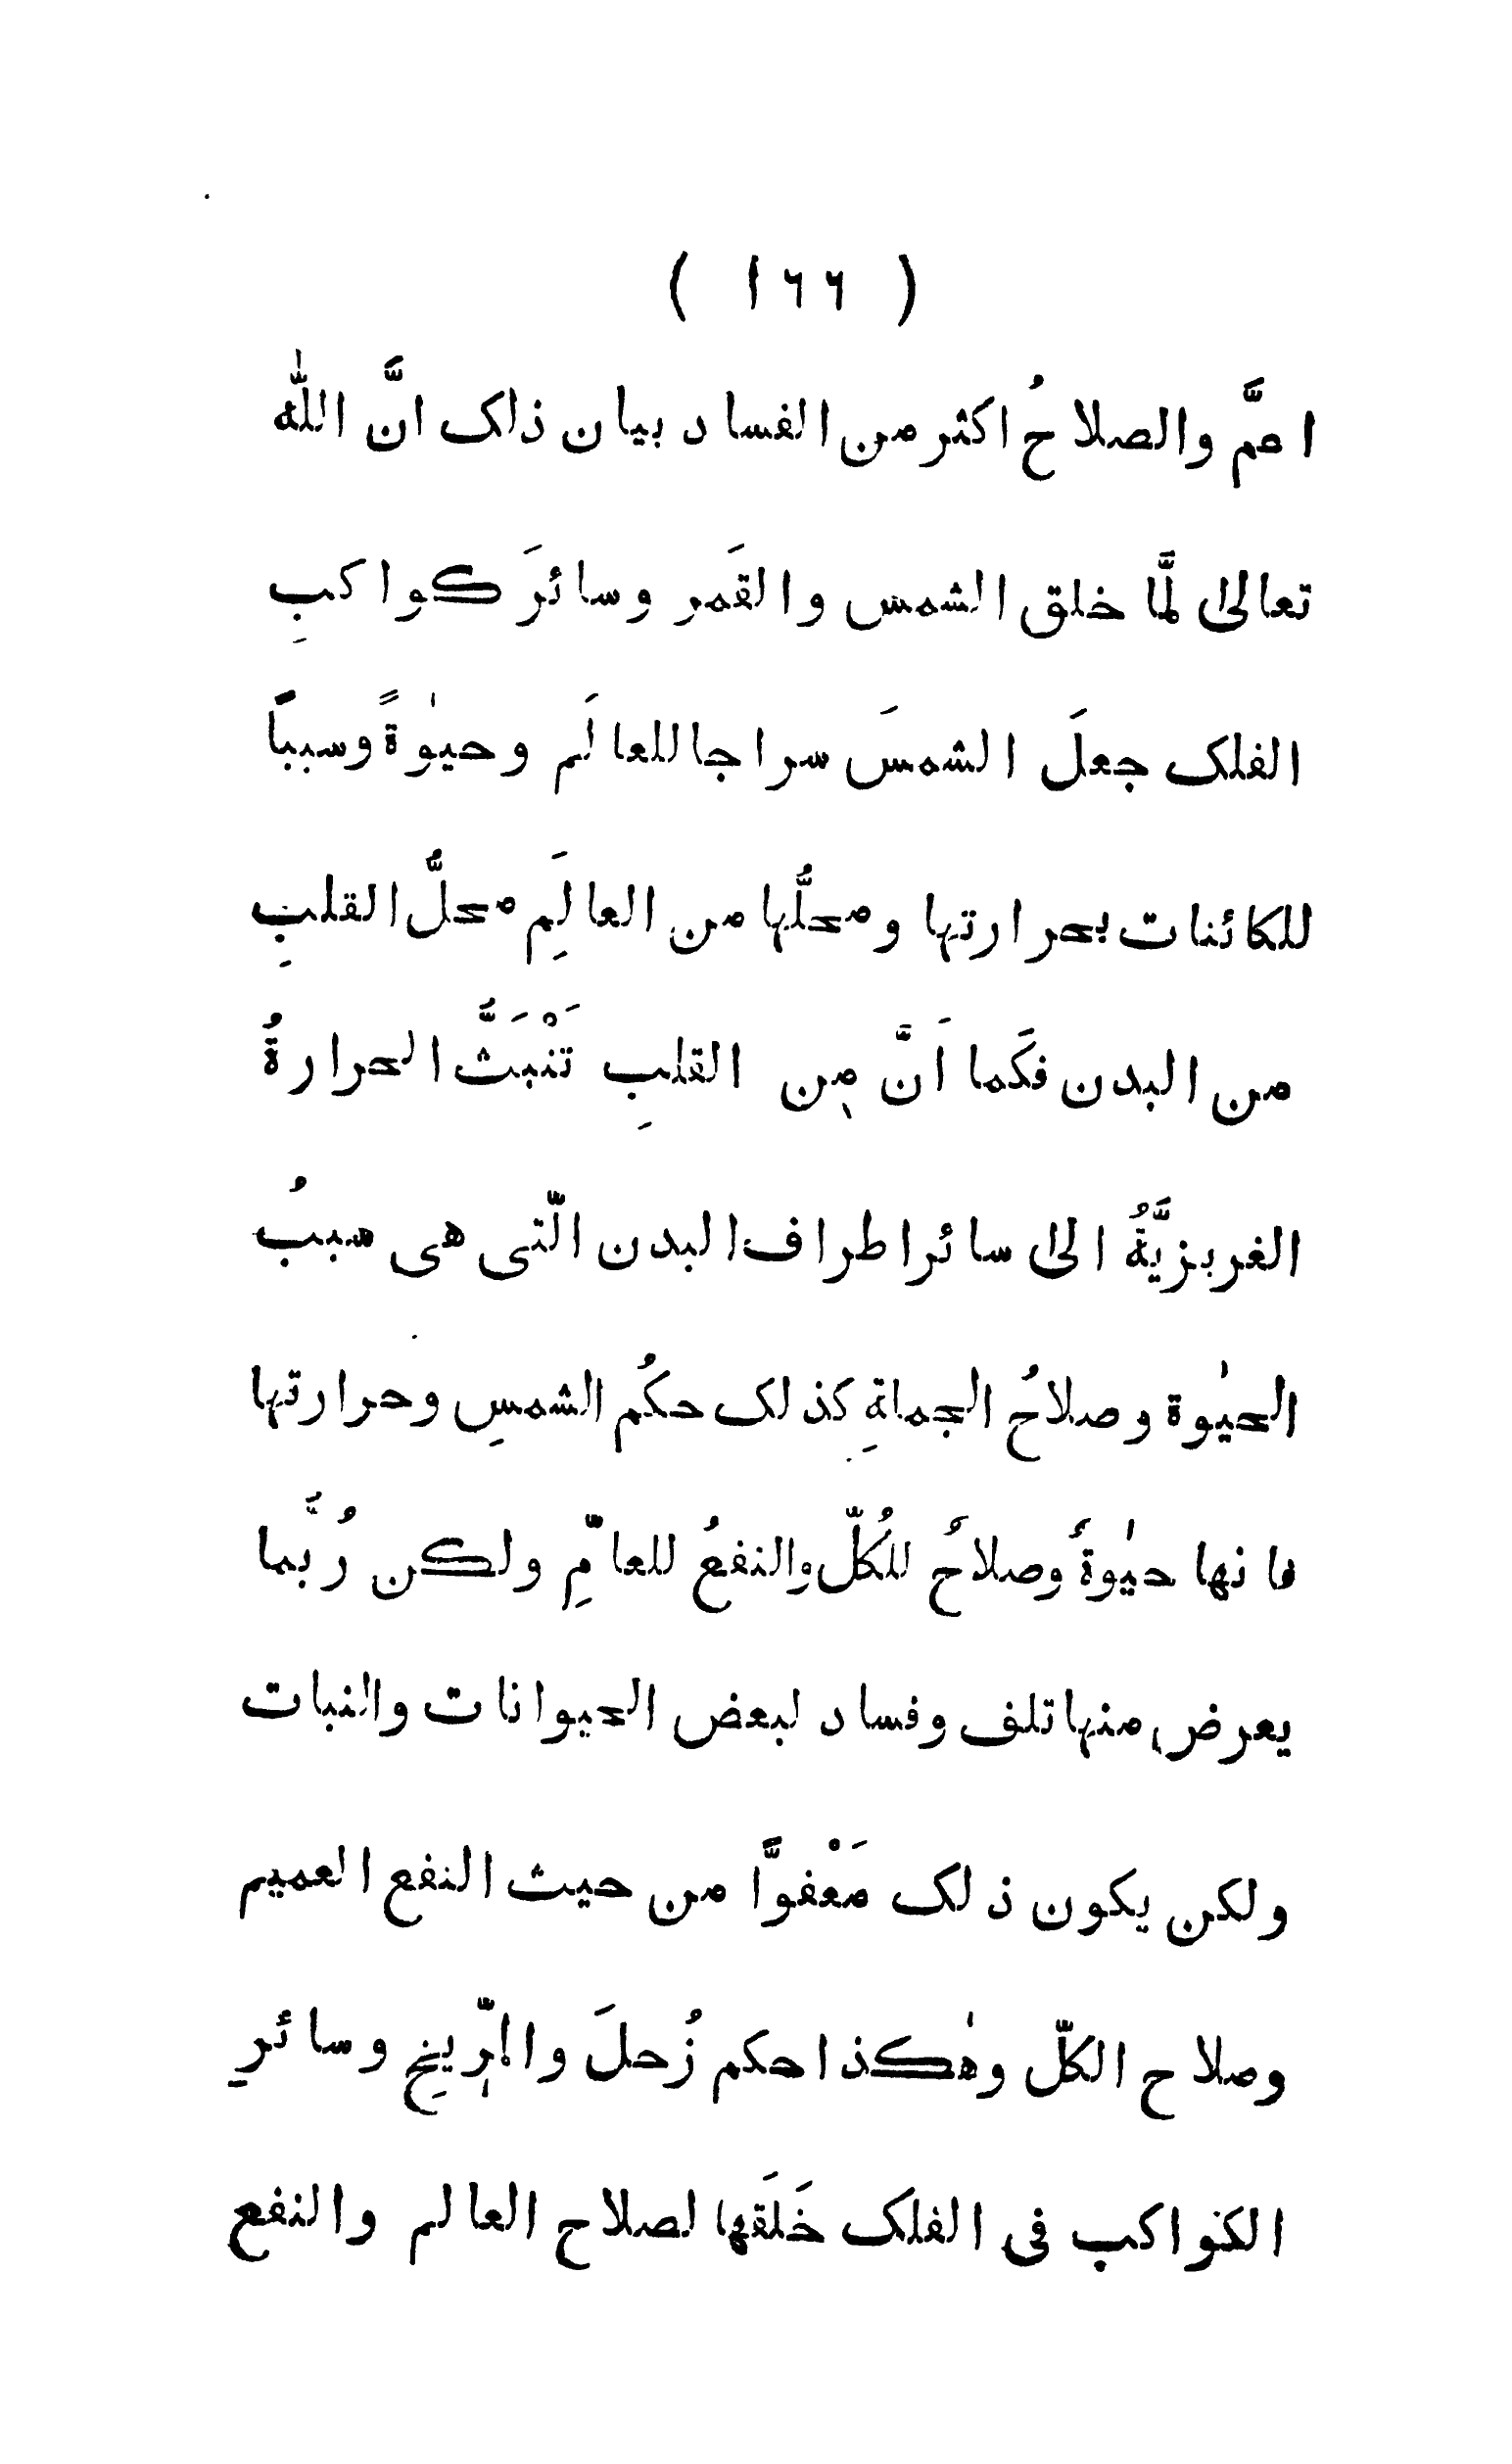 ( ١٦٦ )
اعمَّ والصلاحُ اكثر من الفساد بيان ذلك انَّ اللّٰه
تعالىٰ لمَّا خلق الشمس والقَمر وسائرَ كواكبِ
الفلك جعلَ الشمسَ سراجا للعالَم وحيٰوةً وسببًا
للكائنات بحرارتها ومحلُّها من العالَمِ محلُّ القلبِ
من البدن فكَما اَنَّ مِن القلبِ تَنْبَثُّ الحرارةُ
الغريزيَّةُ الىٰ سائر اطراف البدن الّتى هى سببُ
الحيٰوة وصلاحُ الجملةِ كذلك حكُم الشمسِ وحرارتها
فانها حيٰوةٌ وصلاحٌ للكُلّ والنفعُ للعامّمِ ولكن رُبَّما
يعرض منها تلف وفساد لبعض الحيوانات والنبات
ولكن يكون ذلك مَعْفوًّا من حيث النفع العميم
وصلاح الكلّ وهٰكذا حكم زُحلَ والمِرّيخِ وسائرِ
الكواكب فى الفلك خَلَقَها لصلاح العالم والنفع